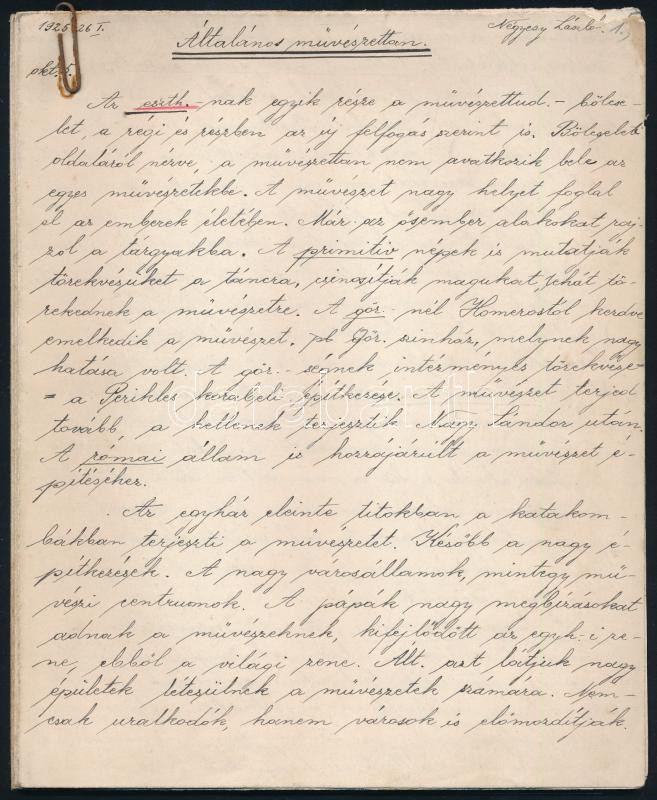 1925/26 I. Négyesy László. 1.)
Általános művészettan.
okt. 5.
Az eszth.-nak egyik része a művészettud.- bölcse-
let, a régi és részben az új felfogás szerint is. Bölcseleti
oldaláról nézve, a művészettan nem avatkozik bele az
egyes művészetekbe. A művészet nagy helyet foglal
el az emberek életében. Már az ősember alakokat raj-
zol a tárgyakba. A primitiv népek is mutatják
törekvésüket a táncra, csinosítják magukat, tehát tö-
rekednek a művészetre. A gör.-nél Homerostól kezdve
emelkedik a művészet. pl. Gör. szinház, melynek nagy
hatása volt. A gör.-ségnek intézményes törekvése=
= a Perikles korabeli építkezése. A művészet terjed
tovább a hellenek terjesztik Nagy Sándor után.
A római állam is hozzájárult a művészet é-
pítéséhez.
Az egyház eleinte titokban a katakom-
bákban terjeszti a művészetet. Később a nagy é-
pítkezések. A nagy városállamok, mintegy mű-
vészi centrumok. A pápák nagy megbízásokat
adnak a művészeknek, kifejlődött az egyh.-i ze-
ne, ebből a világi zene. Ált. azt látjuk nagy
épületek létesülnek a művészetek számára. Nem-
csak uralkodók, hanem városok is előmozdítják.
darabanth